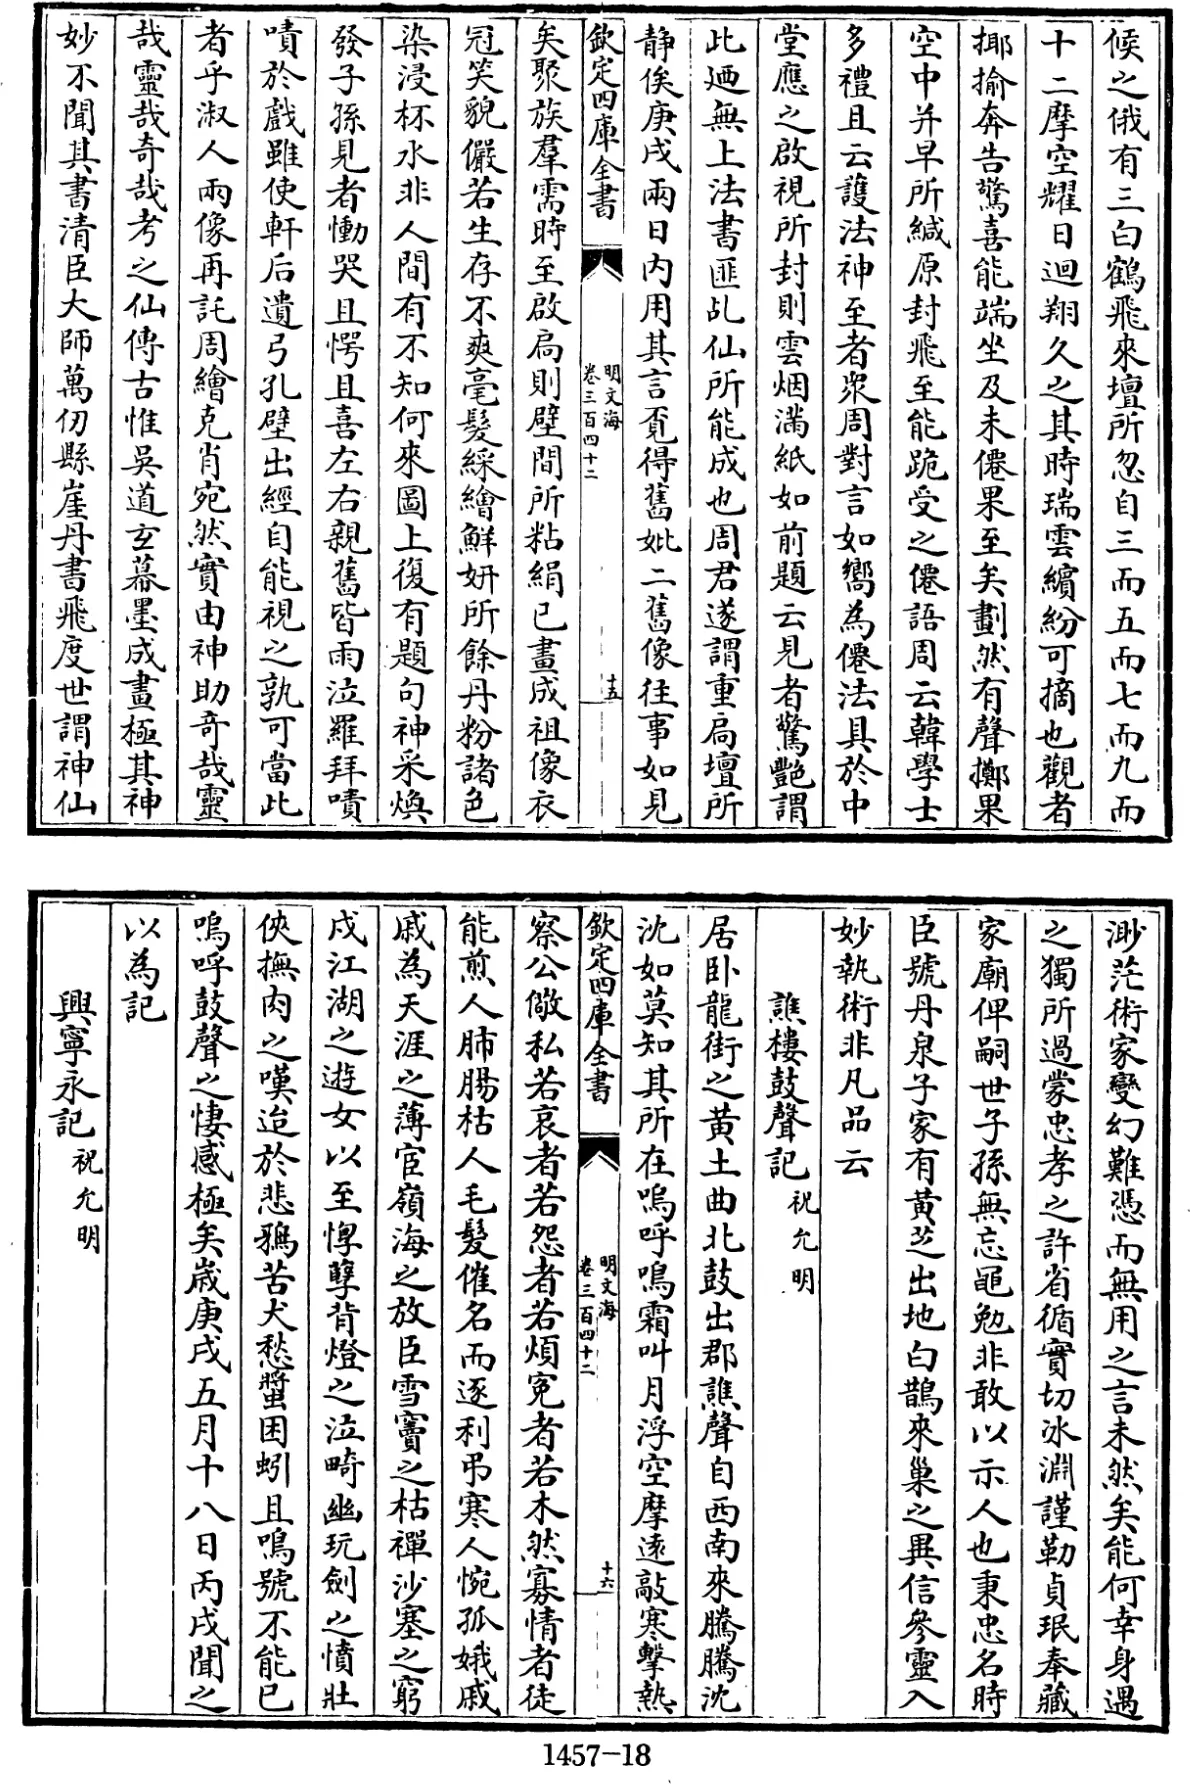 候之俄有三白鶴飛來壇所忽自三而五而七而九而
十二摩空耀日迴翔久之其時瑞雲繽紛可摘也觀者
揶揄奔告驚喜能端坐及未僊果至矣劃然有聲擲果
空中并早所緘原封飛至能跪受之僊語周云韓學士
多禮且云護法神至者衆周對言如嚮為僊法具於中
堂應之啟視所封則雲烟滿紙如前題云見者驚艷謂
此迺無上法書匪乩仙所能成也周君遂謂重扃壇所
靜俟庚戌兩日内用其言覔得舊妣二舊像往事如見
欽定四庫全書
明文海
卷三百四十二
十五
矣聚族羣需時至啟扃則壁間所粘絹已畫成祖像衣
冠笑貌儼若生存不爽毫髮綵繪鮮妍所餘丹粉諸色
染浸杯水非人間有不知何來圖上復有題句神采煥
發子孫見者慟哭且愕且喜左右親舊皆雨泣羅拜嘖
嘖於戲雖使軒后遺弓孔壁出經自能視之孰可當此
者乎淑人兩像再託周繪克肖宛然實由神助奇哉靈
哉靈哉奇哉考之仙傳古惟吳道玄幕墨成畫極其神
妙不聞其書清臣大師萬仞縣崖丹書飛度世謂神仙
渺茫術家變幻難憑而無用之言未然矣能何幸身遇
之獨所過蒙忠孝之許省循實切氷淵謹勒貞珉奉藏
家廟俾嗣世子孫無忘黽勉非敢以示人也秉忠名時
臣號丹泉子家有黃芝出地白鵲來巢之異信參靈入
妙執術非凡品云
譙樓鼓聲記 祝允明
居卧龍街之黃土曲北鼓出郡譙聲自西南來騰騰沈
沈如莫知其所在嗚呼鳴霜叫月浮空摩遠敲寒擊熱
欽定四庫全書
明文海
卷三百四十二
十六
察公儆私若哀者若怨者若煩冤者若木然寡情者徒
能煎人肺腸枯人毛髮催名而逐利弔寒人惋孤娥戚
戚為天涯之薄宦嶺海之放臣雪竇之枯禪沙塞之窮
戍江湖之遊女以至惸孽背燈之泣畸幽玩劍之憤壯
俠撫肉之嘆迨於悲鴉苦犬愁螿困蚓且鳴號不能已
嗚呼鼓聲之悽感極矣歲庚戌五月十八日丙戌聞之
以為記
興寧永記 祝允明
1457-18